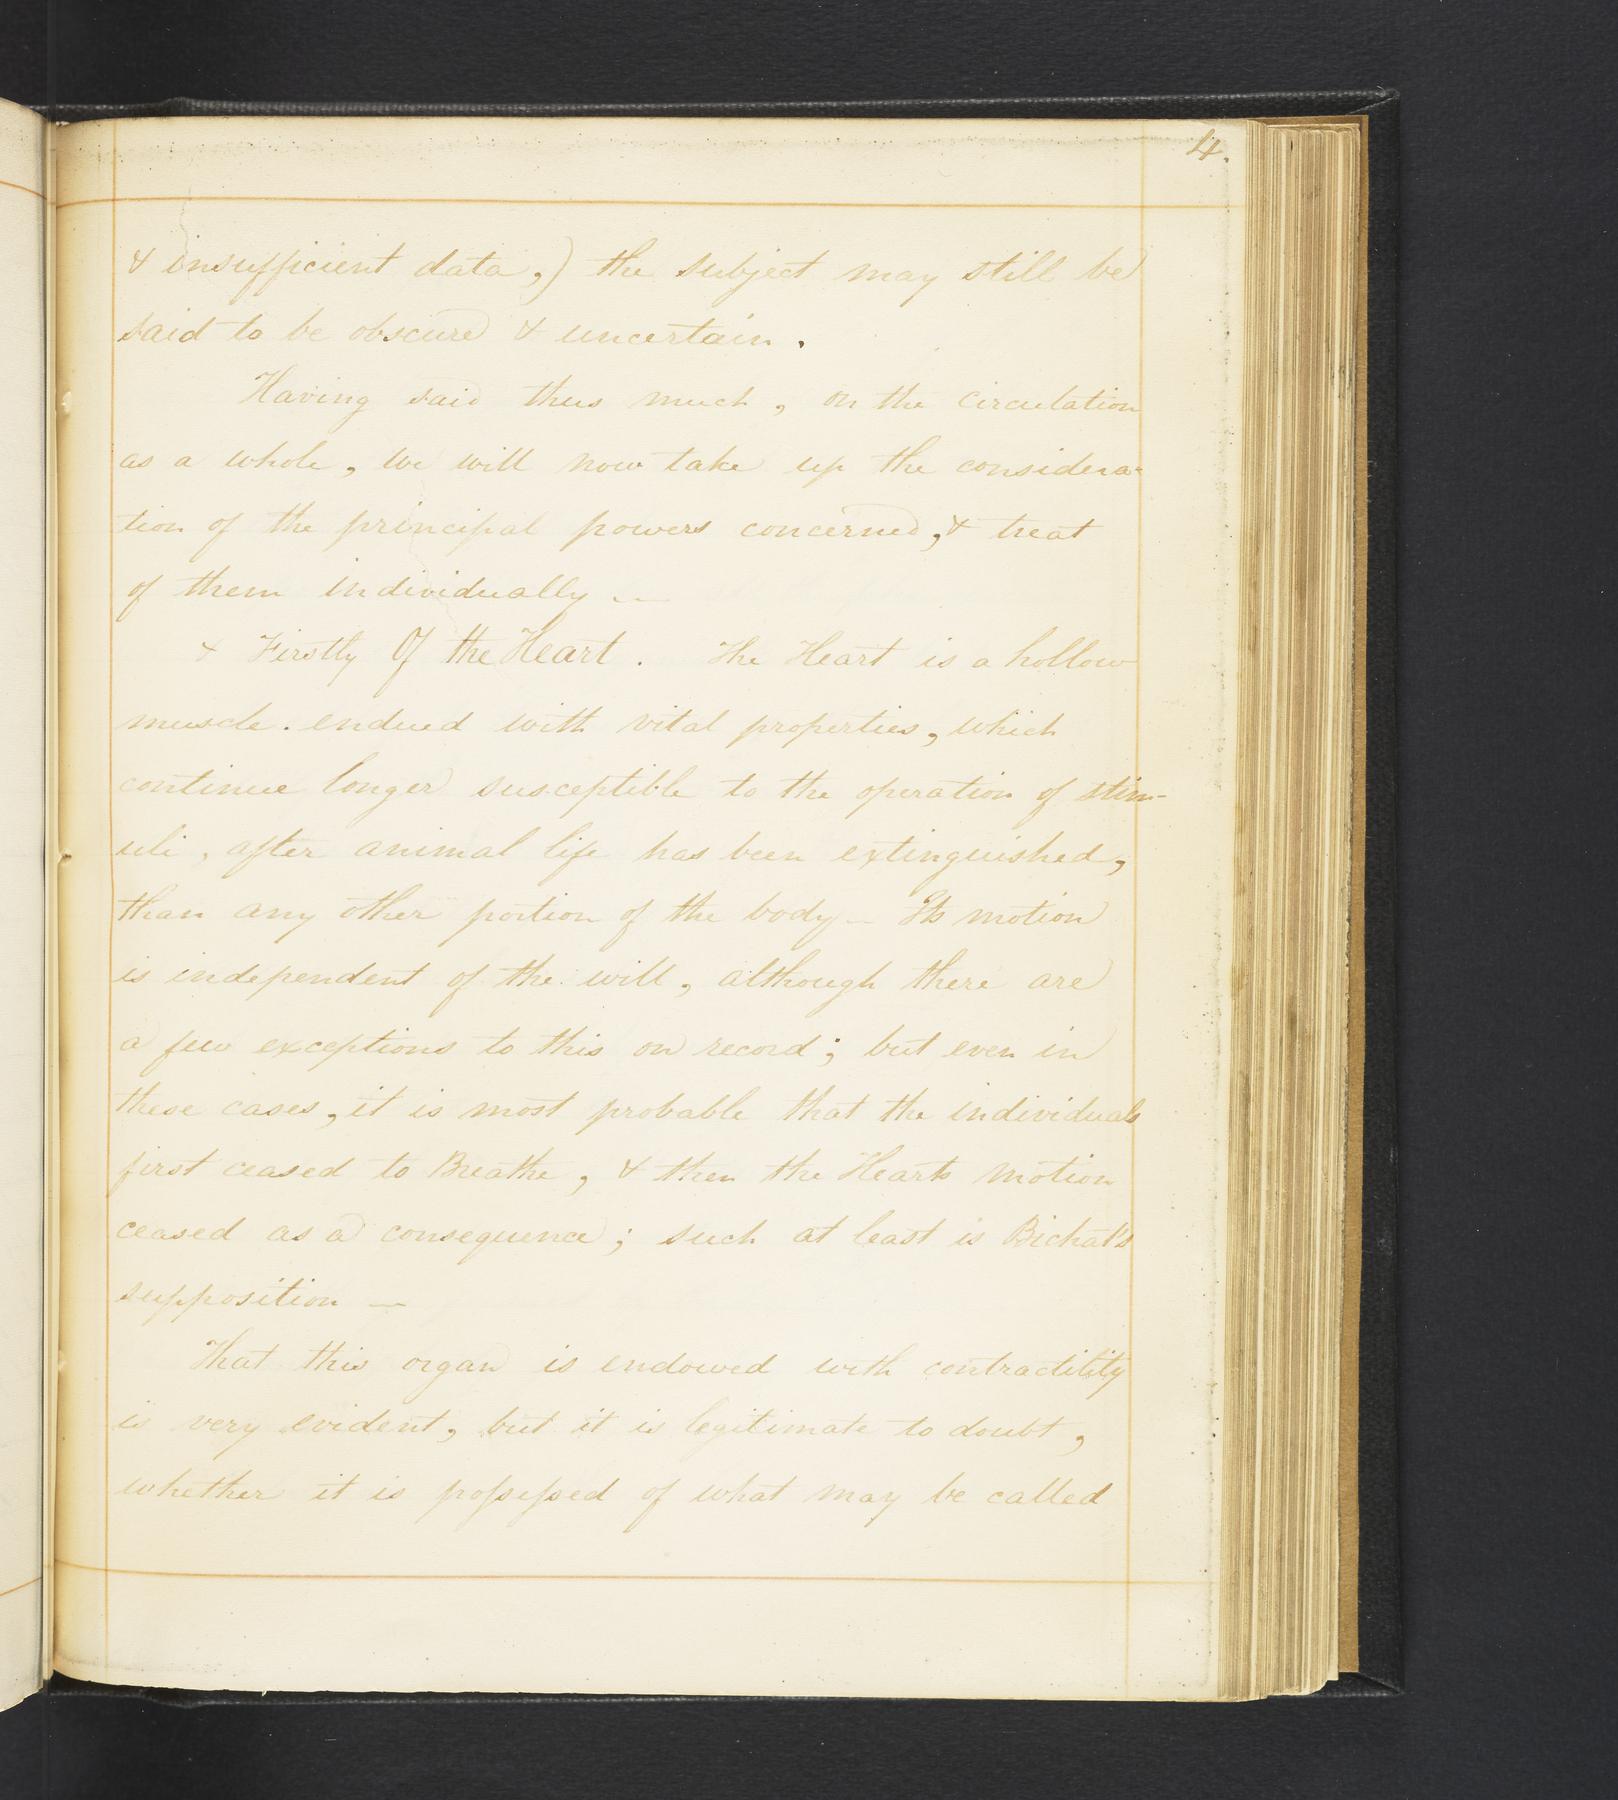 4.
& insufficient data,) the subject may still be
said to be obscure & uncertain.
Having said thus much, on the circulation
as a whole, we will now take up the considera-
tion of the principal powers concerned, & treat
of them individually —
& Firstly Of the Heart. The Heart is a hollow
muscle. endued with vital properties, which
continue longer susceptible to the operation of stim-
uli, after animal life has been extinguished,
than any other portion of the body — Its motion
is independent of the will, although there are
a few exceptions to this on record; but even in
these cases, it is most probable that the individuals
first ceased to Breathe, & then the Hearts motion
ceased as a consequence; such at least is Bichat's
supposition —
That this organ is endowed with contractility
is very evident, but it is legitimate to doubt,
whether it is possessed of what may be called